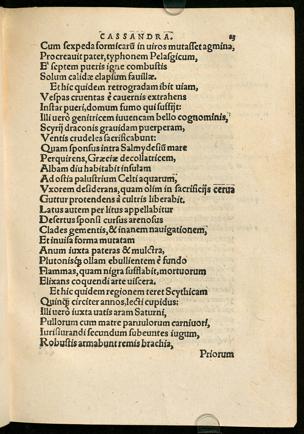 CASSANDRA. 83
Cum sexpeda formicarū in uiros mutasset agmina,
Procreauit pater, typhonem Pelasgicum,
E' septem pueris igne combustis
Solum calidæ elapsium fauillæ.
Et hic quidem retrogradam ibit uiam,
Vespas cruentas è cauernis extrahens
Instar pueri, domum fumo qui suffijt:
Illi uerò genitricem iuuencam bello cognominis,
Scyrij draconis grauidam puerperam,
Ventis crudeles sacrificabunt:
Quam sponsus intra Salmydesiū mare
Perquirens, Græciæ decollatricem,
Albam diu habitabit insulam
Ad ostia palustrium Celti aquarum,
Vxorem desiderans, quam olim in sacrificijs cerua
Guttur protendens à cultris liberabit.
Latus autem per litus appellabitur
Desertus sponsi cursus arenosus
Clades gementis, & inanem nauigationem,
Et inuisa forma mutatam
Anum iuxta pateras & mulctra,
Plutonisq; ollam ebullientem è fundo
Flammas, quam nigra sufflabit, mortuorum
Elixans coquendi arte uiscera.
Et hic quidem regionem teret Scythicam
Quinq; circiter annos, lecti cupidus:
Illi uerò iuxta uatis aram Saturni,
Pullorum cum matre paruulorum carniuori,
Iurisiurandi secundum subeuntes iugum,
Robustis armabunt remis brachia,
Priorum